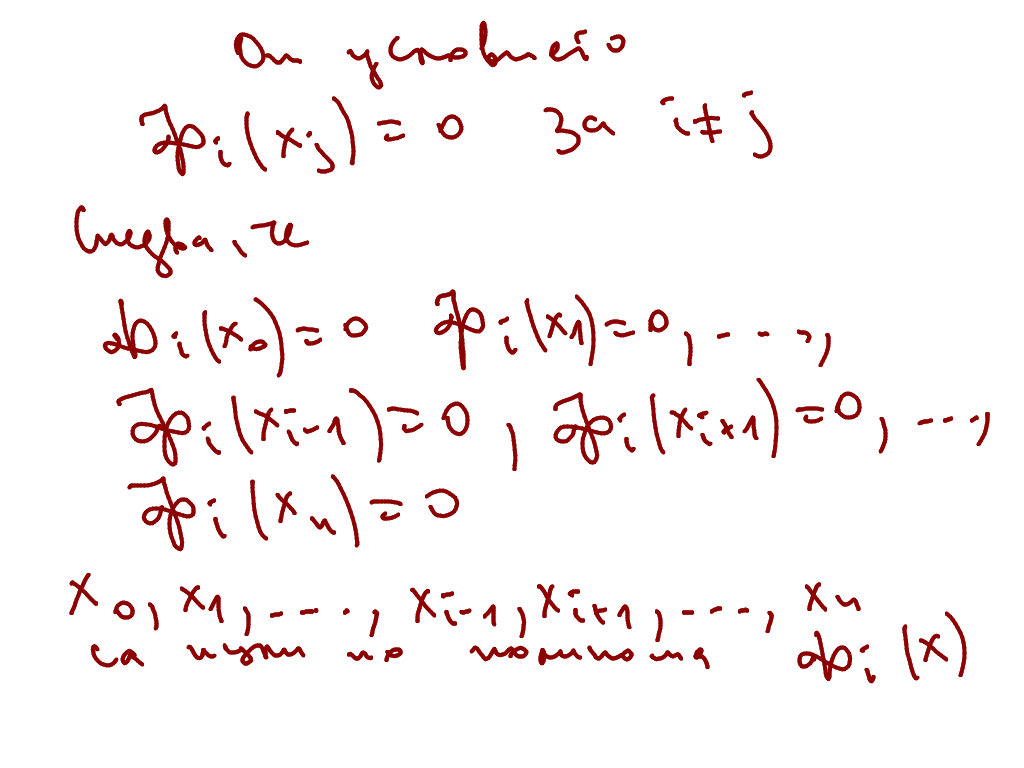 От условието
φi(xj) = 0 за i ≠ j
Следва, че
φi(x0) = 0 φi(x1) = 0, ...,
φi(xi-1) = 0, φi(xi+1) = 0, ...,
φi(xn) = 0
x0, x1, ..., xi-1, xi+1, ..., xn
са нули на полинома φi(x)